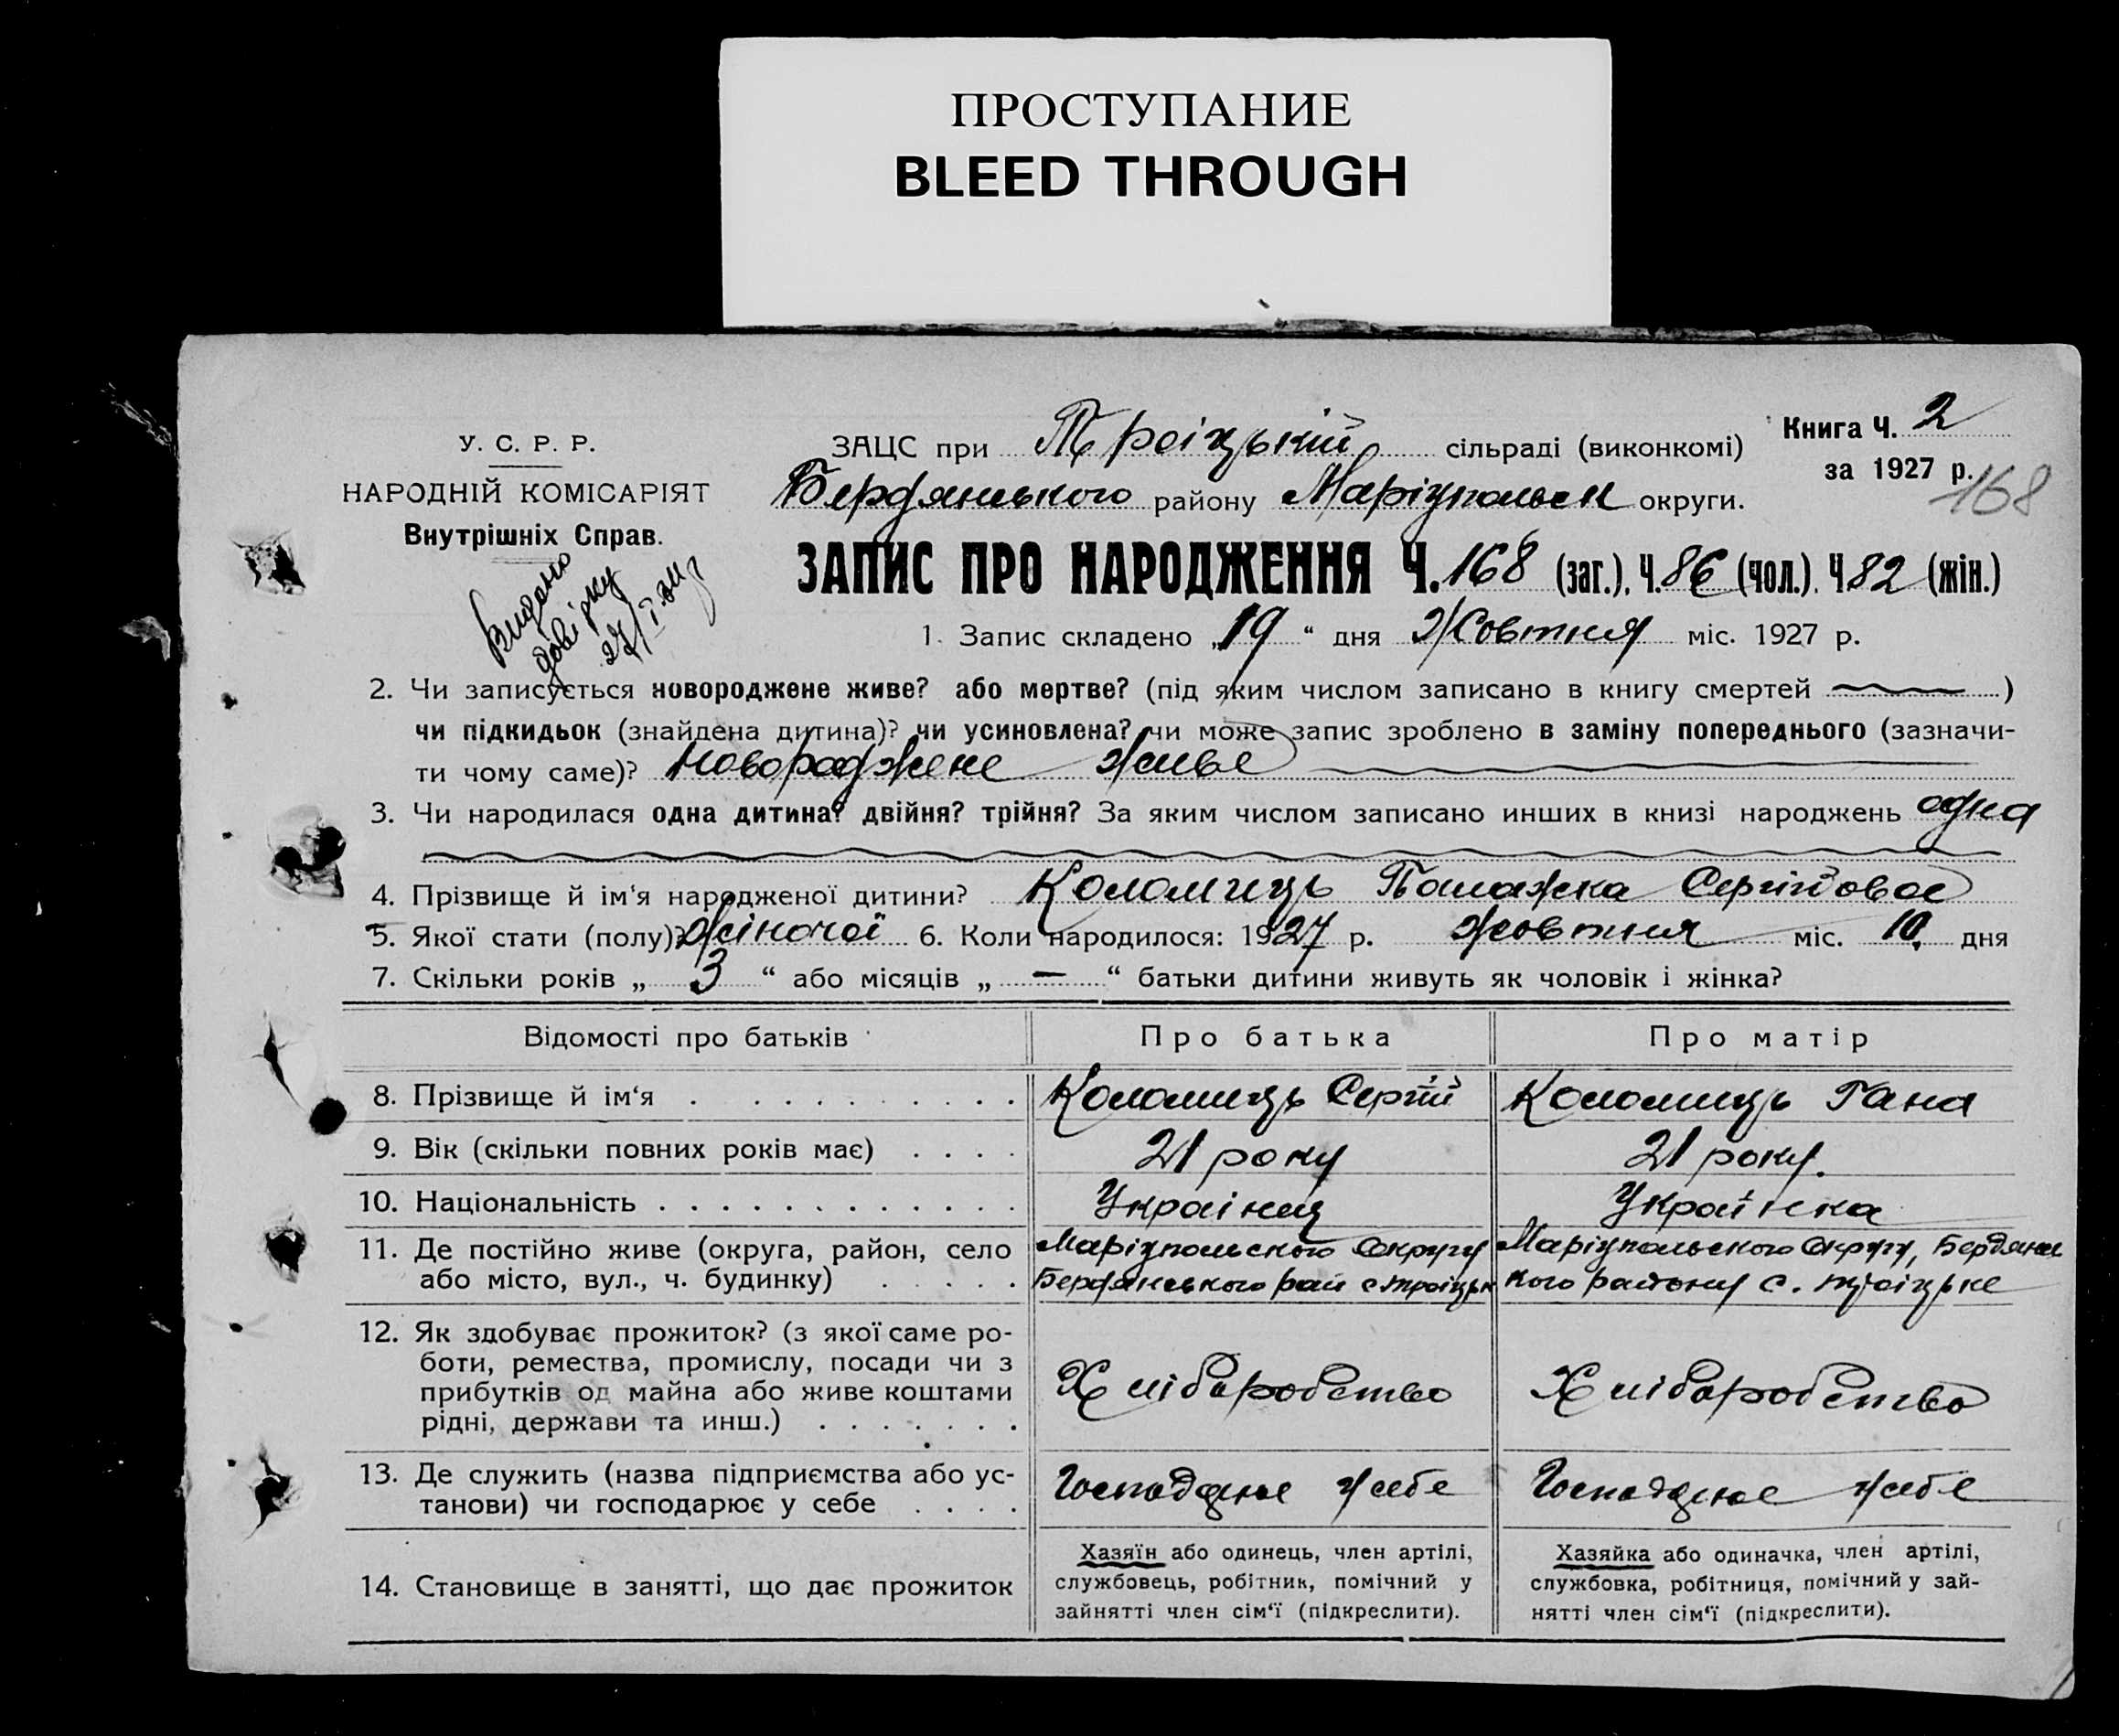 ПРОСТУПАНИЕ
BLEED THROUGH
У. С. Р. Р.
НАРОДНІЙ КОМІСАРІЯТ
Внутрішніх Справ.
Видано
довідку
ЗАЦС при Троіцькій сільраді (виконкомі)
Бердянського району Маріупольск округи.
Книга Ч. 2
за 1927 р.
168
ЗАПИС ПРО НАРОДЖЕННЯ Ч. 168 (заг.), Ч. 86 (чол.). Ч 82 (жін.)
1. Запис складено „19“ дня Жовтня міс. 1927 р.
2. Чи записується новороджене живе? або мертве? (під яким числом записано в книгу смертей )
чи підкидьок (знайдена дитина)? чи усиновлена? чи може запис зроблено в заміну попереднього (зазначи-
ти чому саме)? Новорожене живе
3. Чи народилася одна дитина? двійня? трійня? За яким числом записано инших в книзі народжень одна
4. Прізвище й ім‘я народженої дитини? Коломиць Сергійовое
5. Якої стати (полу)? Жіночоі 6. Коли народилося: 1927 р. жовтня міс. 10. дня
7. Скільки років „ 3 “ або місяців „ — “ батьки дитини живуть як чоловік і жінка?
Відомості про батьків
Про батька
Про матір
8. Прізвище й ім‘я
Коломиць Сергій
Коломиць Гана
9. Вік (скільки повних років має)
21 року
21 року.
10. Національність
Українец
Українка
11. Де постійно живе (округа, район, село
або місто, вул., ч. будинку)
Маріупольского Округу
Бердянського рай с Троіцьк
Маріупольского Округу, Бердянс
кого району с. Троіцьке
12. Як здобуває прожиток? (з якої саме ро-
боти, ремества, промислу, посади чи з
прибутків од майна або живе коштами
рідні, держави та инш.)
Хліборобство
Хліборобство
13. Де служить (назва підприємства або ус-
танови) чи господарює у себе
Господарює у себе
Господарює у себе
14. Становище в занятті, що дає прожиток
Хазяїн або одинець, член артілі,
службовець, робітник, помічний у
зайнятті член сім‘ї (підкреслити).
Хазяйка або одиначка, член артілі,
службовка, робітниця, помічний у зай-
нятті член сім‘ї (підкреслити).